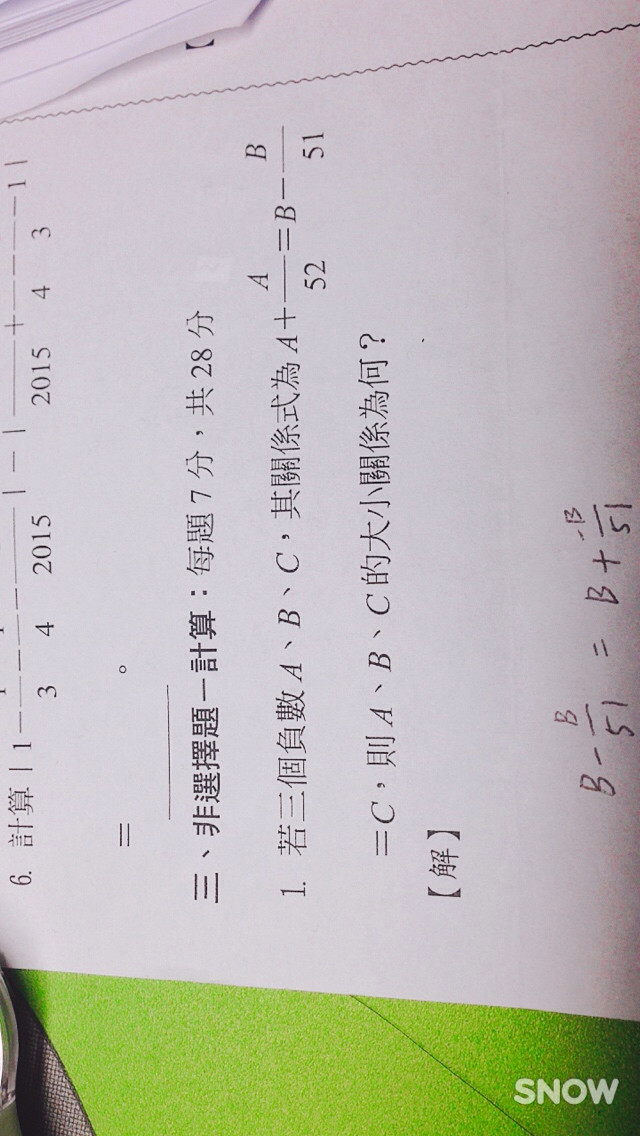 6. 計算 | 1 − — − — − — | − | — + — − — − 1 |
3 4 2015 2015 4 3
= 。
三、非選擇題－計算：每題 7 分，共 28 分
1. 若三個負數 A、B、C，其關係式為 A + A/52 = B − B/51
= C，則 A、B、C 的大小關係為何？
【解】
B − B/51 = B + -B/51
SNOW